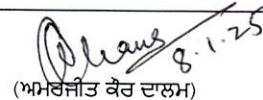 8.1.25
(ਅਮਰਜੀਤ ਕੌਰ ਦਾਲਮ)